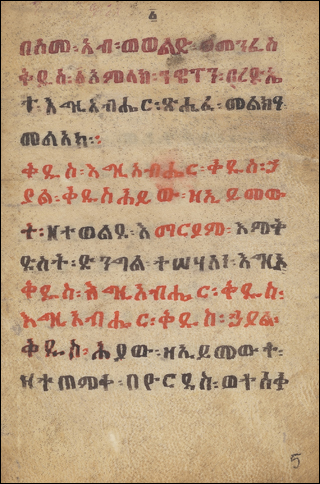 በስመ፡አብ፡ወወልድ፡ወመንፈስ
ቅዱስ፡፩አምላክ፡ንዌጥን፡በረድኤ
ተ፡እግዚአብሔር፡ጽሒፈ፡መልክዓ
መልአክ፡፡
ቅዱስ፡እግዚአብሔር፡ቅዱስ፡ኃ
ያል፡ቅዱስ፡ሕያው፡ዘኢይመው
ት፡ዘተወልደ፡እማርያም፡እምቅ
ድስት፡ድንግል፡ተሣሃለነ፡እግዚኦ
ቅዱስ፡እግዚአብሔር፡ቅዱስ፡
እግዚአብሔር፡ቅዱስ፡ኃያል፡
ቅዱስ፡ሕያው፡ዘኢይመውት፡
ዘተጠምቀ፡በዮርዳስ፡ወተሰቅ
5